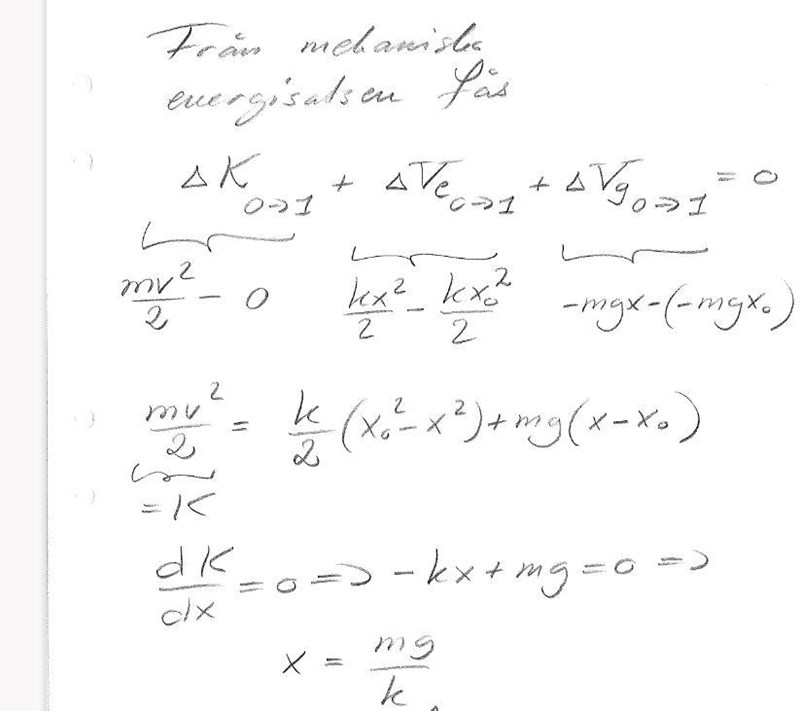 Från mekaniska
energisatsen fås
ΔK₀→₁ + ΔVe₀→₁ + ΔVg₀→₁ = 0
mv²/2 - 0    kx²/2 - kx₀²/2    -mgx-(-mgx₀)
mv²/2 = k/2 (x₀² - x²) + mg(x - x₀)
= K
dK/dx = 0 => -kx + mg = 0 =>
x = mg/k